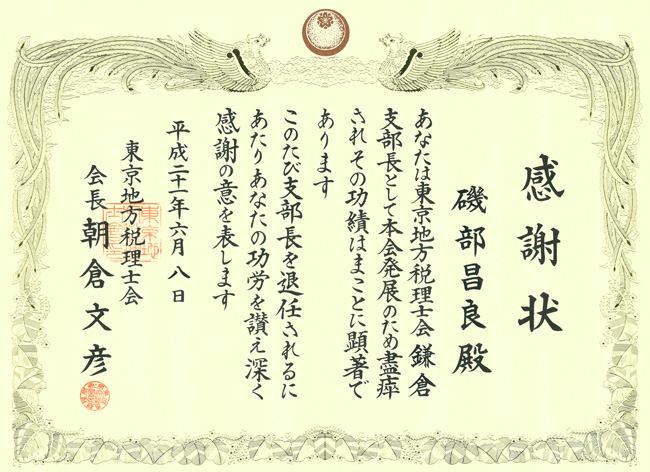 感謝状
磯部昌良殿
あなたは東京地方税理士会鎌倉
支部長として本会発展のため盡瘁
されその功績はまことに顕著で
あります
このたび支部長を退任されるに
あたりあなたの功労を讃え深く
感謝の意を表します
平成二十一年六月八日
東京地方税理士会
会長 朝倉文彦